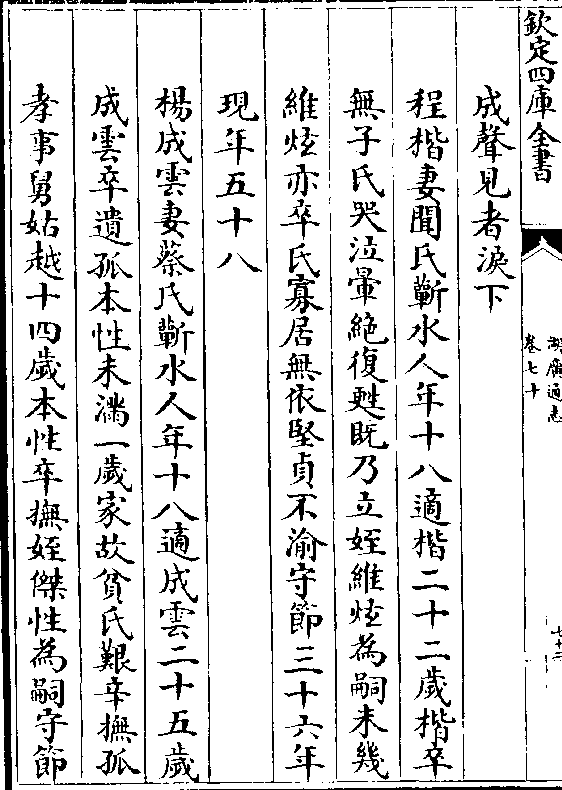 欽定四庫全書
湖廣通志
卷七十
成聲見者淚下
程楷妻聞氏蘄水人年十八適楷二十二歲楷卒
無子氏哭泣暈絶復甦既乃立姪維炫為嗣未幾
維炫亦卒氏寡居無依堅貞不渝守節三十六年
現年五十八
楊成雲妻蔡氏蘄水人年十八適成雲二十五歲
成雲卒遺孤本性未滿一歲家故貧氏艱辛撫孤
孝事舅姑越十四歲本性卒撫姪傑性為嗣守節